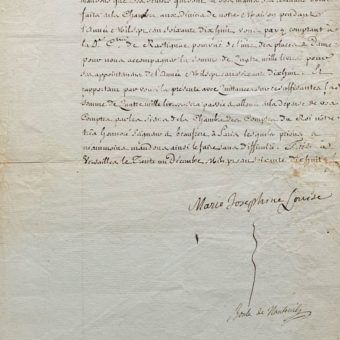 faits à la Chambre aux Deniers de notre Maison pendant
l'Année Mil sept cent soixante Dixhuit, vous payiez comptant à
la D.e C.sse de Rastignac, pourvue de l'une des places de Dame
pour nous accompagner la somme de Quatre mille livres pour
ses appointemens de l'Année Mil sept cent soixante dixhuit. Et
rapportant par vous la presente avec Quittance sur ce suffisante la d.
somme de Quatre mille livres sera passée et allouée à la dépense de vos
Comptes par les Gens de la Chambre des Comptes du Roi notre
très Honoré Seigneur et beaufrere à Paris lesquels prions et
néanmoins mandons ainsi le faire sans difficulté. Fait à
Versailles le Trente un Décembre Mil sept cent soixante dixhuit
Marie Joséphine Louise